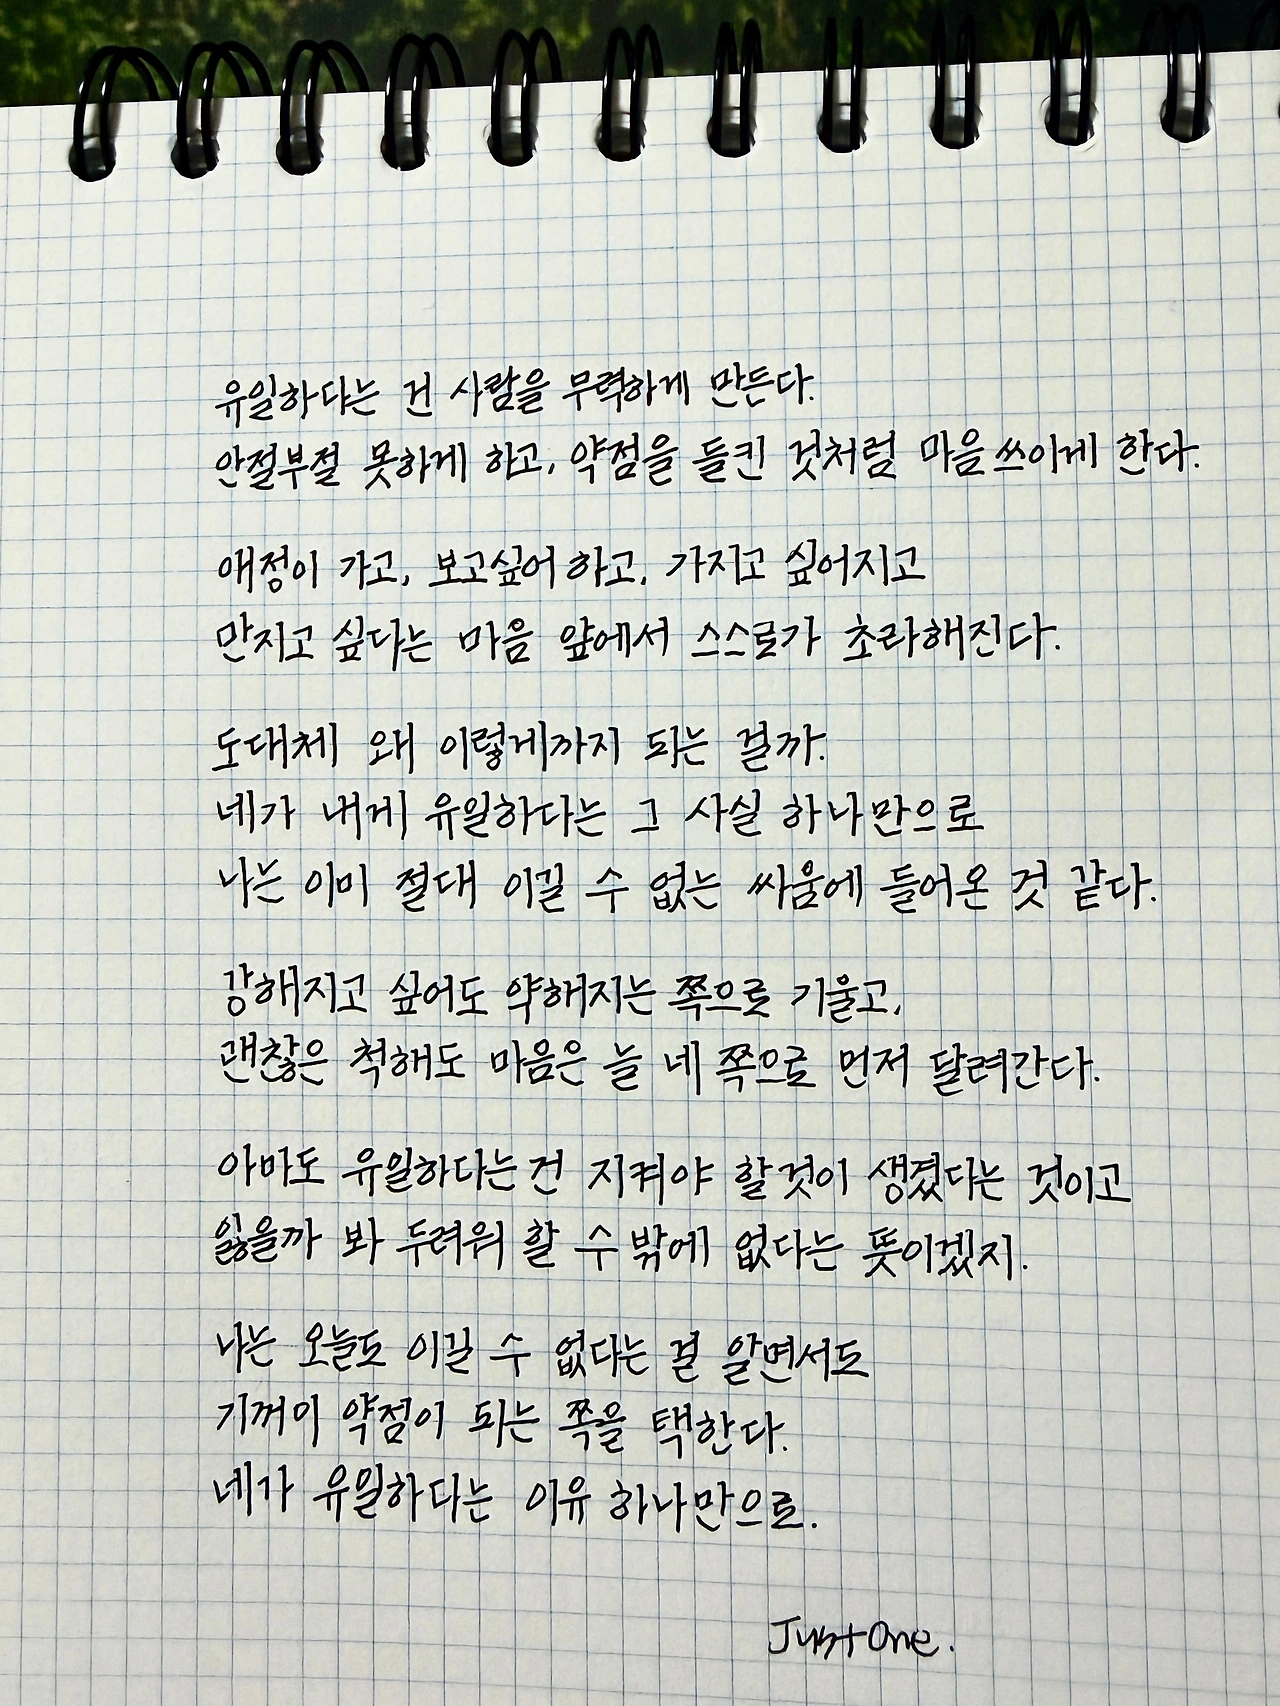 유일하다는 건 사람을 무력하게 만든다.
안절부절 못하게 하고, 약점을 들킨 것처럼 마음 쓰이게 한다.
애정이 가고, 보고싶어 하고, 가지고 싶어지고
만지고 싶다는 마음 앞에서 스스로가 초라해진다.
도대체 왜 이렇게까지 되는 걸까.
네가 내게 유일하다는 그 사실 하나만으로
나는 이미 절대 이길 수 없는 싸움에 들어온 것 같다.
강해지고 싶어도 약해지는 쪽으로 기울고,
괜찮은 척해도 마음은 늘 네 쪽으로 먼저 달려간다.
아마도 유일하다는 건 지켜야 할 것이 생겼다는 것이고
잃을까 봐 두려워 할 수 밖에 없다는 뜻이겠지.
나는 오늘도 이길 수 없다는 걸 알면서도
기꺼이 약점이 되는 쪽을 택한다.
네가 유일하다는 이유 하나만으로.
Just One.